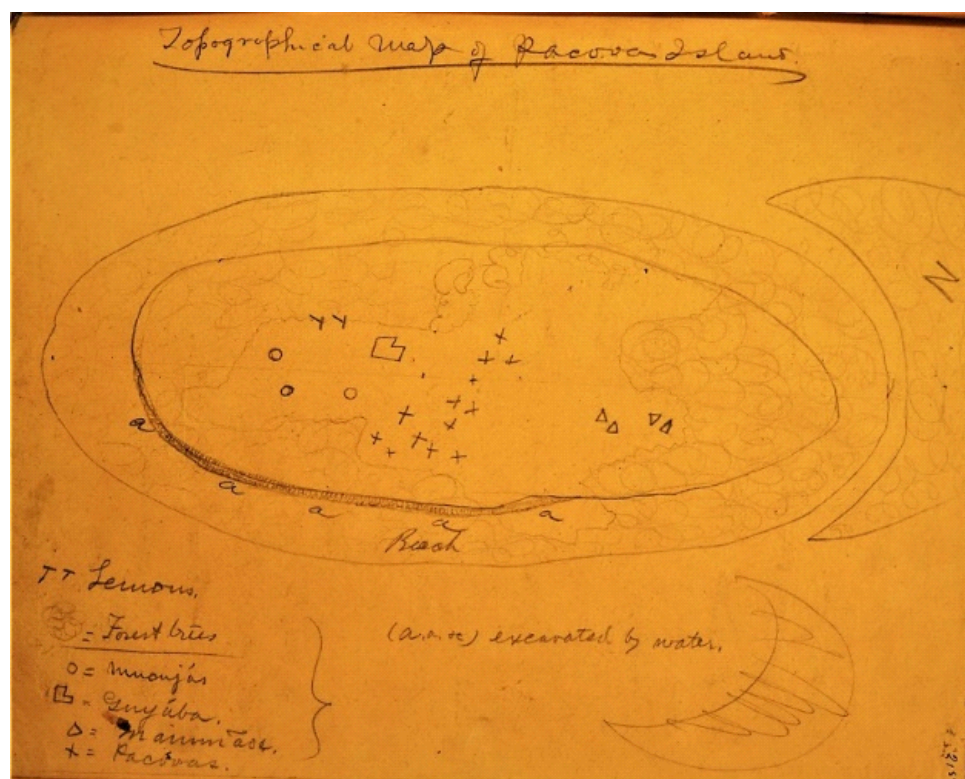 Topographical Map of Pacovas Island.
N
a
a
a
a
a
Beach
TT Lemons.
= Forest trees
o = Mucujás
= Guyába.
Δ =
+ = Pacovas.
(a.a.&c) excavated by water.